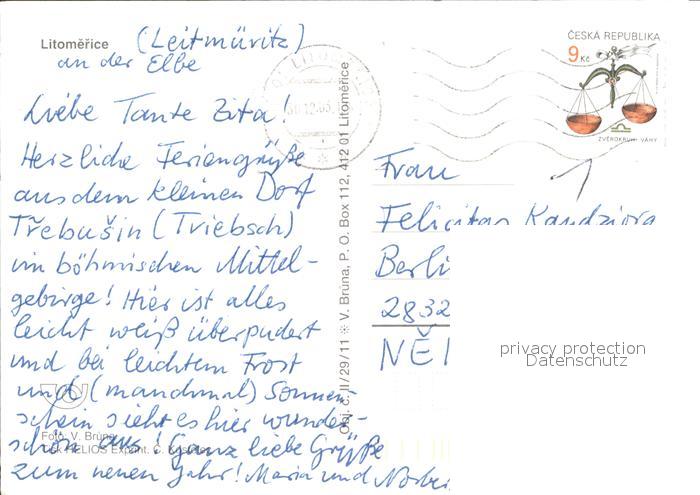 Litoměřice (Leitmüritz)
an der Elbe
Liebe Tante Zita!
Herzliche Feriengrüße
aus dem kleinen Dorf
Třebušin (Triebsch)
im böhmischen Mittel-
gebirge! Hier ist alles
leicht weiß überpudert
und bei leichtem Frost
und (manchmal) Sonnen-
schein sieht es hier wunder-
schön aus! Ganz liebe Grüße
zum neuen Jahr! Maria und
Foto V. Brůna
Tisk HELIOS
Obj. č. II/29/11 ※ V. Brůna, P. O. Box 112, 412 01 Litoměřice
ČESKÁ REPUBLIKA
9 Kč
ZVĚROKRUH VÁHY
Frau
Felicitas Kandziora
Berli
2832
NĚ
privacy protection
Datenschutz